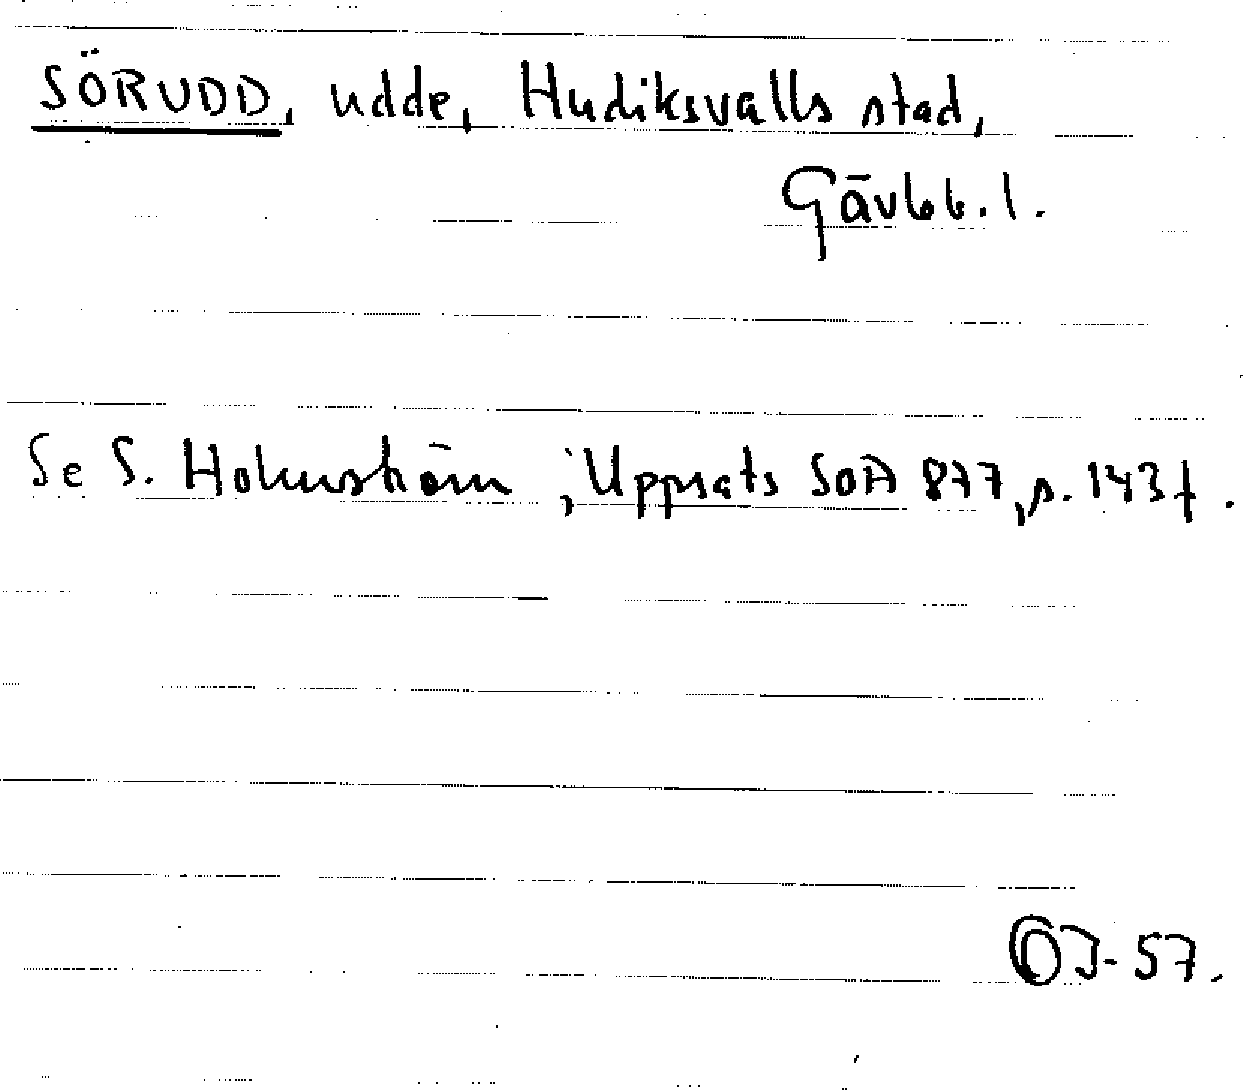 SÖRUDD, udde, Hudiksvalls stad,
Gävleb. l.
Se S. Holmström, Uppsats SOA 877, s. 143 f.
OJ-57.